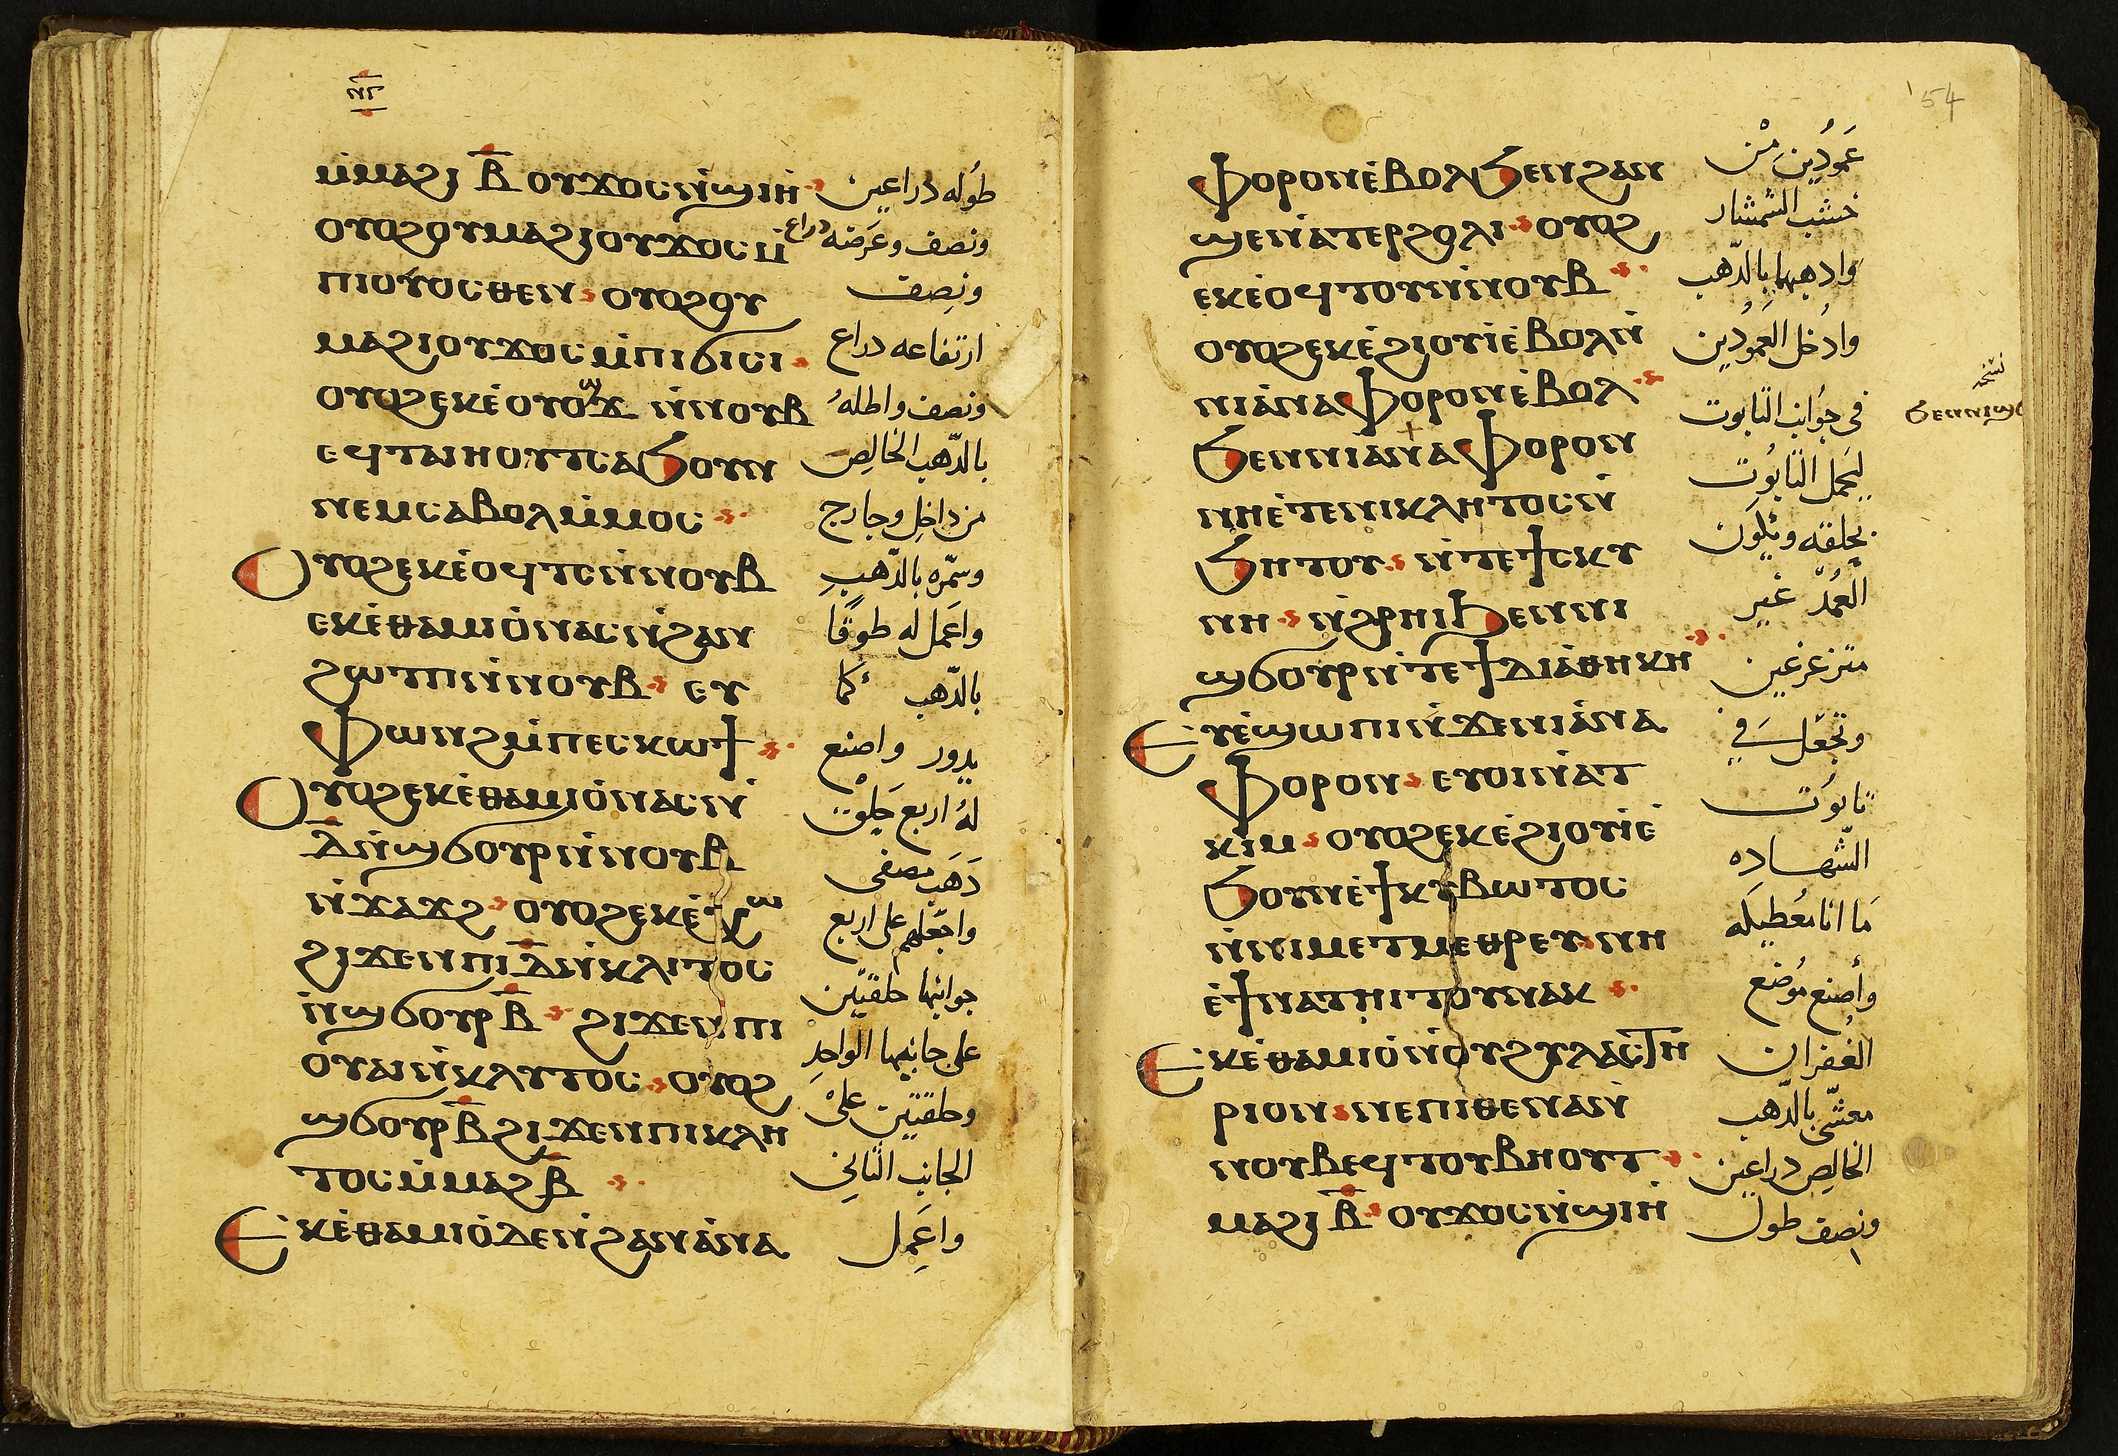 ⲙ̀ⲙⲁϩⲓ ⲃ̅ ⲟⲩϫⲟⲥ ⲛ̀ϣⲓⲏ
ⲟⲩⲟϩ ⲟⲩⲙⲁϩⲓ ⲟⲩϫⲟⲥ ⲙ̀
ⲡⲓⲟⲩⲟⲥⲑⲉⲛ ⲟⲩⲟϩ ⲟⲩ
ⲙⲁϩⲓ ⲟⲩϫⲟⲥ ⲙ̀ⲡⲓϭⲓⲥⲓ
ⲟⲩⲟϩ ⲉⲕⲉ̀ⲟⲩⲟϫ ⲛ̀ⲛⲟⲩⲃ
ⲉϥⲧⲁⲓⲏⲟⲩⲧ ⲥⲁϧⲟⲩⲛ
ⲛⲉⲙ ⲥⲁⲃⲟⲗ ⲙ̀ⲙⲟⲥ
ⲟⲩⲟϩ ⲉⲕⲉ̀ⲟϥⲧⲥ ⲛ̀ⲛⲟⲩⲃ
ⲉⲕⲉ̀ⲑⲁⲙⲓⲟ̀ ⲛⲁⲥ ⲛ̀ϩⲁⲛ
ϩⲱⲧⲡ ⲛ̀ⲛⲟⲩⲃ ⲉⲩ
ⲫⲱⲛϩ ⲙ̀ⲡⲉⲥⲕⲱϯ
ⲟⲩⲟϩ ⲉⲕⲉ̀ⲑⲁⲙⲓⲟ̀ ⲛⲁⲥ ⲛ̀
ⲇ̅ ⲛ̀ϣϭⲟⲩⲣ ⲛ̀ⲛⲟⲩⲃ
ⲛ̀ϫⲁϫϩ ⲟⲩⲟϩ ⲉⲕⲉ̀
ϩⲓϫⲉⲛ ⲡⲓ ⲇ̅ ⲛ̀ⲕⲗⲓⲧⲟⲥ
ⲛ̀ϣϭⲟⲩⲣ ⲃ̅ ϩⲓϫⲉⲛ ⲡⲓ
ⲟⲩⲁⲓ ⲛ̀ⲕⲗⲩⲧⲟⲥ ⲟⲩⲟϩ
ϣϭⲟⲩⲣ ⲃ̅ ϩⲓϫⲉⲛ ⲡⲓⲕⲗⲏ
ⲧⲟⲥ ⲙ̀ⲙⲁϩ ⲃ̅
ⲉⲕⲉ̀ⲑⲁⲙⲓⲟ̀ ⲇⲉ ⲛ̀ϩⲁⲛⲁ̀ⲛⲁ
طوله دراعين
ونصف وعرضه دراع
ونصف
ارتفاعه دراع
ونصف واطله
بالدهب الخالص
من داخل وخارج
وسمره بالدهب
واعمل له طوقا
بالدهب كما
يدور واصنع
له اربع حلق
دهب مصفى
واجعلهم على اربع
جوانبها حلقتين
على جانبها الواحد
وحلقتين على
الجانب الثاني
واعمل
54
ⲫⲟⲣⲟⲛ ⲉ̀ⲃⲟⲗϧⲉⲛ ϩⲁⲛ
ϣⲉ ⲛⲁⲧⲉⲣϩⲟⲗⲓ ⲟⲩⲟϩ
ⲉⲕⲉ̀ⲟϥⲧⲟⲩ ⲛ̀ⲛⲟⲩⲃ
ⲟⲩⲟϩ ⲉⲕⲉ̀ϩⲓⲟⲩⲓ̀ ⲉ̀ⲃⲟⲗ ⲛ̀
ⲛⲓⲁ̀ⲛⲁⲫⲟⲣⲟⲛ ⲉ̀ⲃⲟⲗ
ϧⲉⲛ ⲛⲓⲁⲛⲁⲫⲟⲣⲟⲛ
ⲛⲏⲉ̀ⲧⲉ ⲛⲓⲕⲗⲏⲧⲟⲥ ⲛ̀
ϧⲏⲧⲟⲩ ⲛ̀ⲧⲉ ϯⲥⲕⲩ
ⲛⲏ ⲛ̀ϩⲣⲏⲓ ϧⲉⲛ ⲛⲓ
ϣϭⲟⲩⲣ ⲛ̀ⲧⲉ ϯⲇⲓⲁ̀ⲑⲏⲕⲏ
ⲉⲩⲉ̀ϣⲱⲡⲓ ⲛ̀ϫⲉ ⲛⲓⲁ̀ⲛⲁ
ⲫⲟⲣⲟⲛ ⲉⲩⲟⲓ ⲛ̀ⲁⲧ
ⲕⲓⲙ ⲟⲩⲟϩ ⲉⲕⲉ̀ϩⲓⲟⲩⲓ̀ ⲉ̀
ϧⲟⲩⲛ ⲉ̀ϯⲕⲩⲃⲱⲧⲟⲥ
ⲛ̀ⲛⲓⲙⲉⲧⲙⲉⲑⲣⲉⲩ ⲛⲏ
ⲉ̀ϯⲛⲁⲧⲏⲓⲧⲟⲩ ⲛⲁⲕ
ⲉⲕⲉ̀ⲑⲁⲙⲓⲟ̀ ⲛ̀ⲟⲩϩⲩⲗⲁⲥⲧⲏ
ⲣⲓⲟⲛ ⲛⲉⲡⲓⲑⲉⲛⲁ ⲛ̀
ⲛⲟⲩⲃ ⲉϥⲧⲟⲩⲃⲏⲟⲩⲧ
ⲙⲁϩⲓ ⲃ̅ ⲟⲩϫⲟⲥ ⲛ̀ϣⲓⲏ
عمودين من
خشب الشمشار
وادهبها بالدهب
وادخل العمودين
في جوانب التابوت
ليحمل التابوت
بحلقه ويكون
العمد غير
متزعزعين
وتجعل في
تابوت
الشهاده
ما انا معطيكه
واصنع موضع
الغفران
مغشى بالدهب
الخالص دراعين
ونصف طول
نسخه
ϧⲉⲛ ⲛⲓϣ